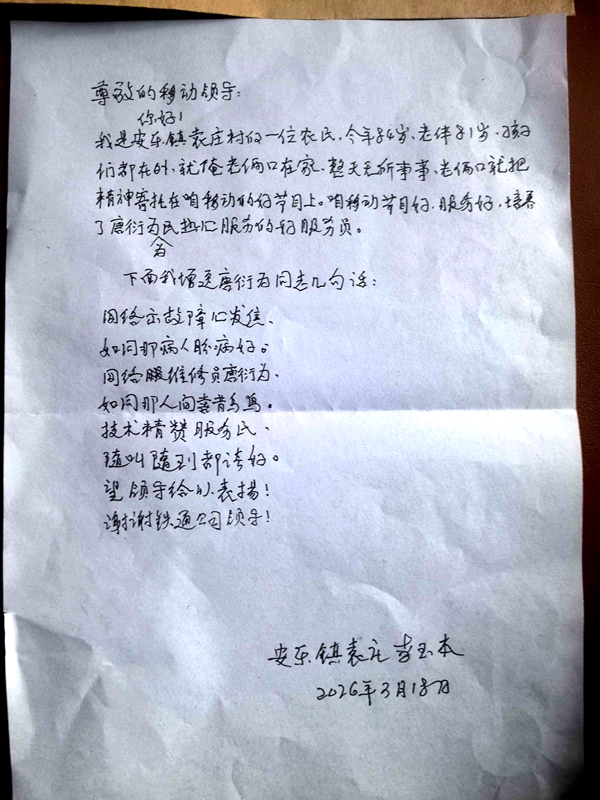 尊敬的移动领导:
你好!
我是安乐镇袁庄村的一位农民,今年84岁,老伴81岁,孩子
们都在外,就俺老俩口在家,整天无所事事,老俩口就把
精神寄托在咱移动的好节目上。咱移动节目好,服务好,培养
了唐衍为民热心服务的好服务员。
为
下面我增送唐衍为同志几句话:
网络示故障心发焦、
如同那病人盼病好。
网络服维修员唐衍为、
如同那人间喜鹊鸟。
技术精赞服务民、
随叫随到都谈好。
望领导给以表揚!
谢谢铁通公司领导!
安乐镇袁庄 李玉本
2026年3月18日